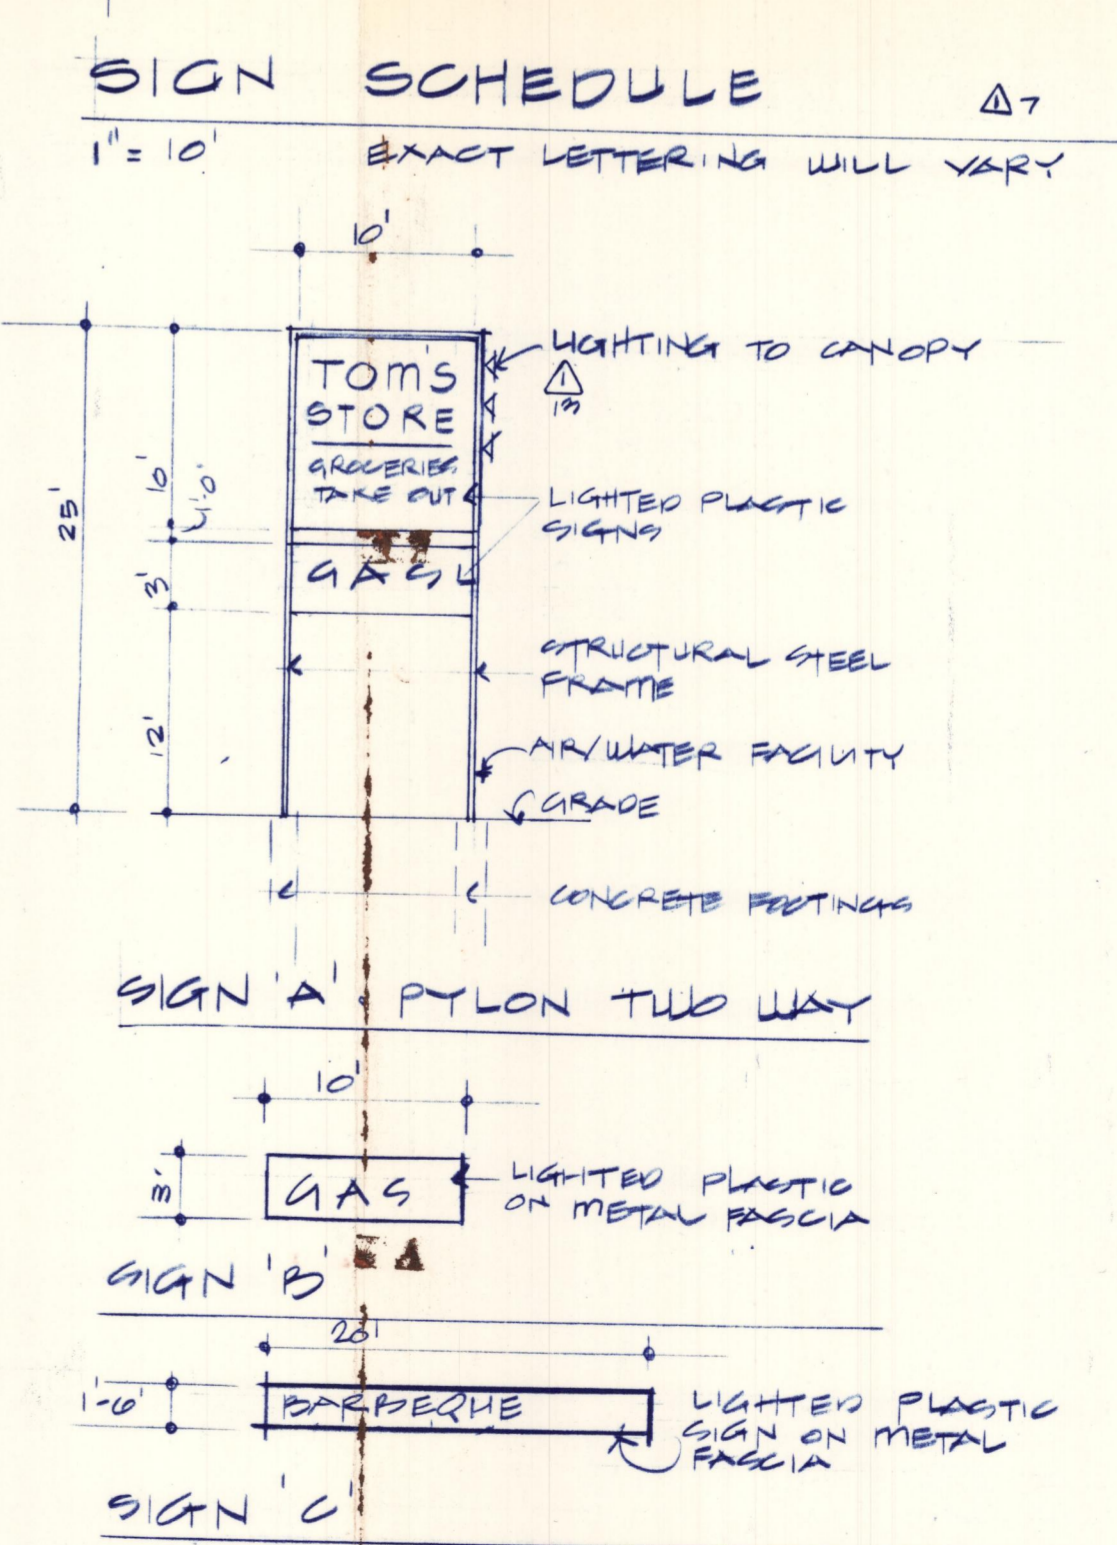 SIGN SCHEDULE
1 7
1" = 10' EXACT LETTERING WILL VARY
10'
LIGHTING TO CANOPY
1
13
TOM'S
STORE
GROCERIES
TAKE OUT
25'
10'
LIGHTED PLASTIC
SIGNS
3'
GAS
STRUCTURAL STEEL
FRAME
12'
AIR/WATER FACILITY
GRADE
CONCRETE FOOTINGS
SIGN 'A' PYLON TWO WAY
10'
3'
GAS
LIGHTED PLASTIC
ON METAL FASCIA
SIGN 'B'
20'
1'-6'
BARBEQUE
LIGHTED PLASTIC
SIGN ON METAL
FASCIA
SIGN 'C'